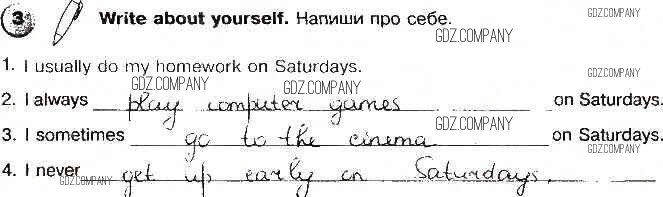 3 Write about yourself. Напиши про себе.
GDZ.COMPANY
GDZ.COMPANY
1. I usually do my homework on Saturdays.
GDZ.COMPANY
GDZ.COMPANY
2. I always play computer games on Saturdays.
GDZ.COMPANY
3. I sometimes go to the cinema on Saturdays.
GDZ.COMPANY
4. I never get up early on Saturdays.
GDZ.COMPANY